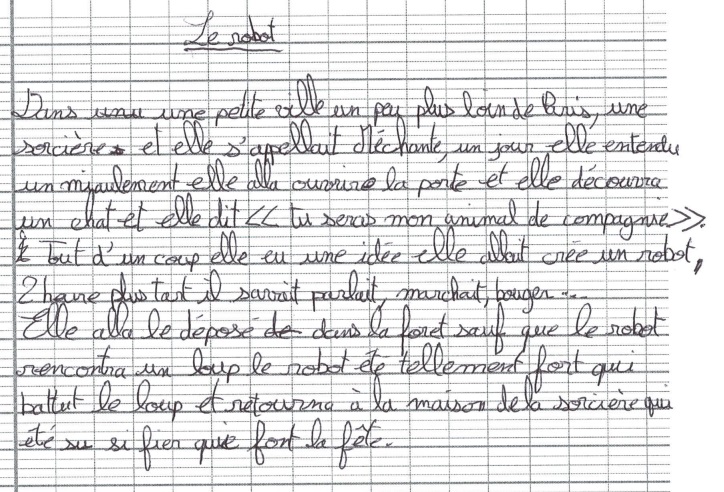 Le robot
Dans une petite ville un peu plus loin de Paris, une
sorcière et elle s'appellait Méchante, un jour elle entendu
un miaulement elle alla ouvrire la porte et elle découvra
un chat et elle dit << tu seras mon animal de compagnie >>.
Tout d'un coup elle eu une idée elle allait crée un robot,
2 heure plus tart il savait parlait, marchait, bouger...
Elle alla le déposé dans la foret sauf que le robot
rencontra un loup le robot été tellement fort qui
battut le loup et retourna à la maison de la sorcière qui
été si fier quie font la fête.